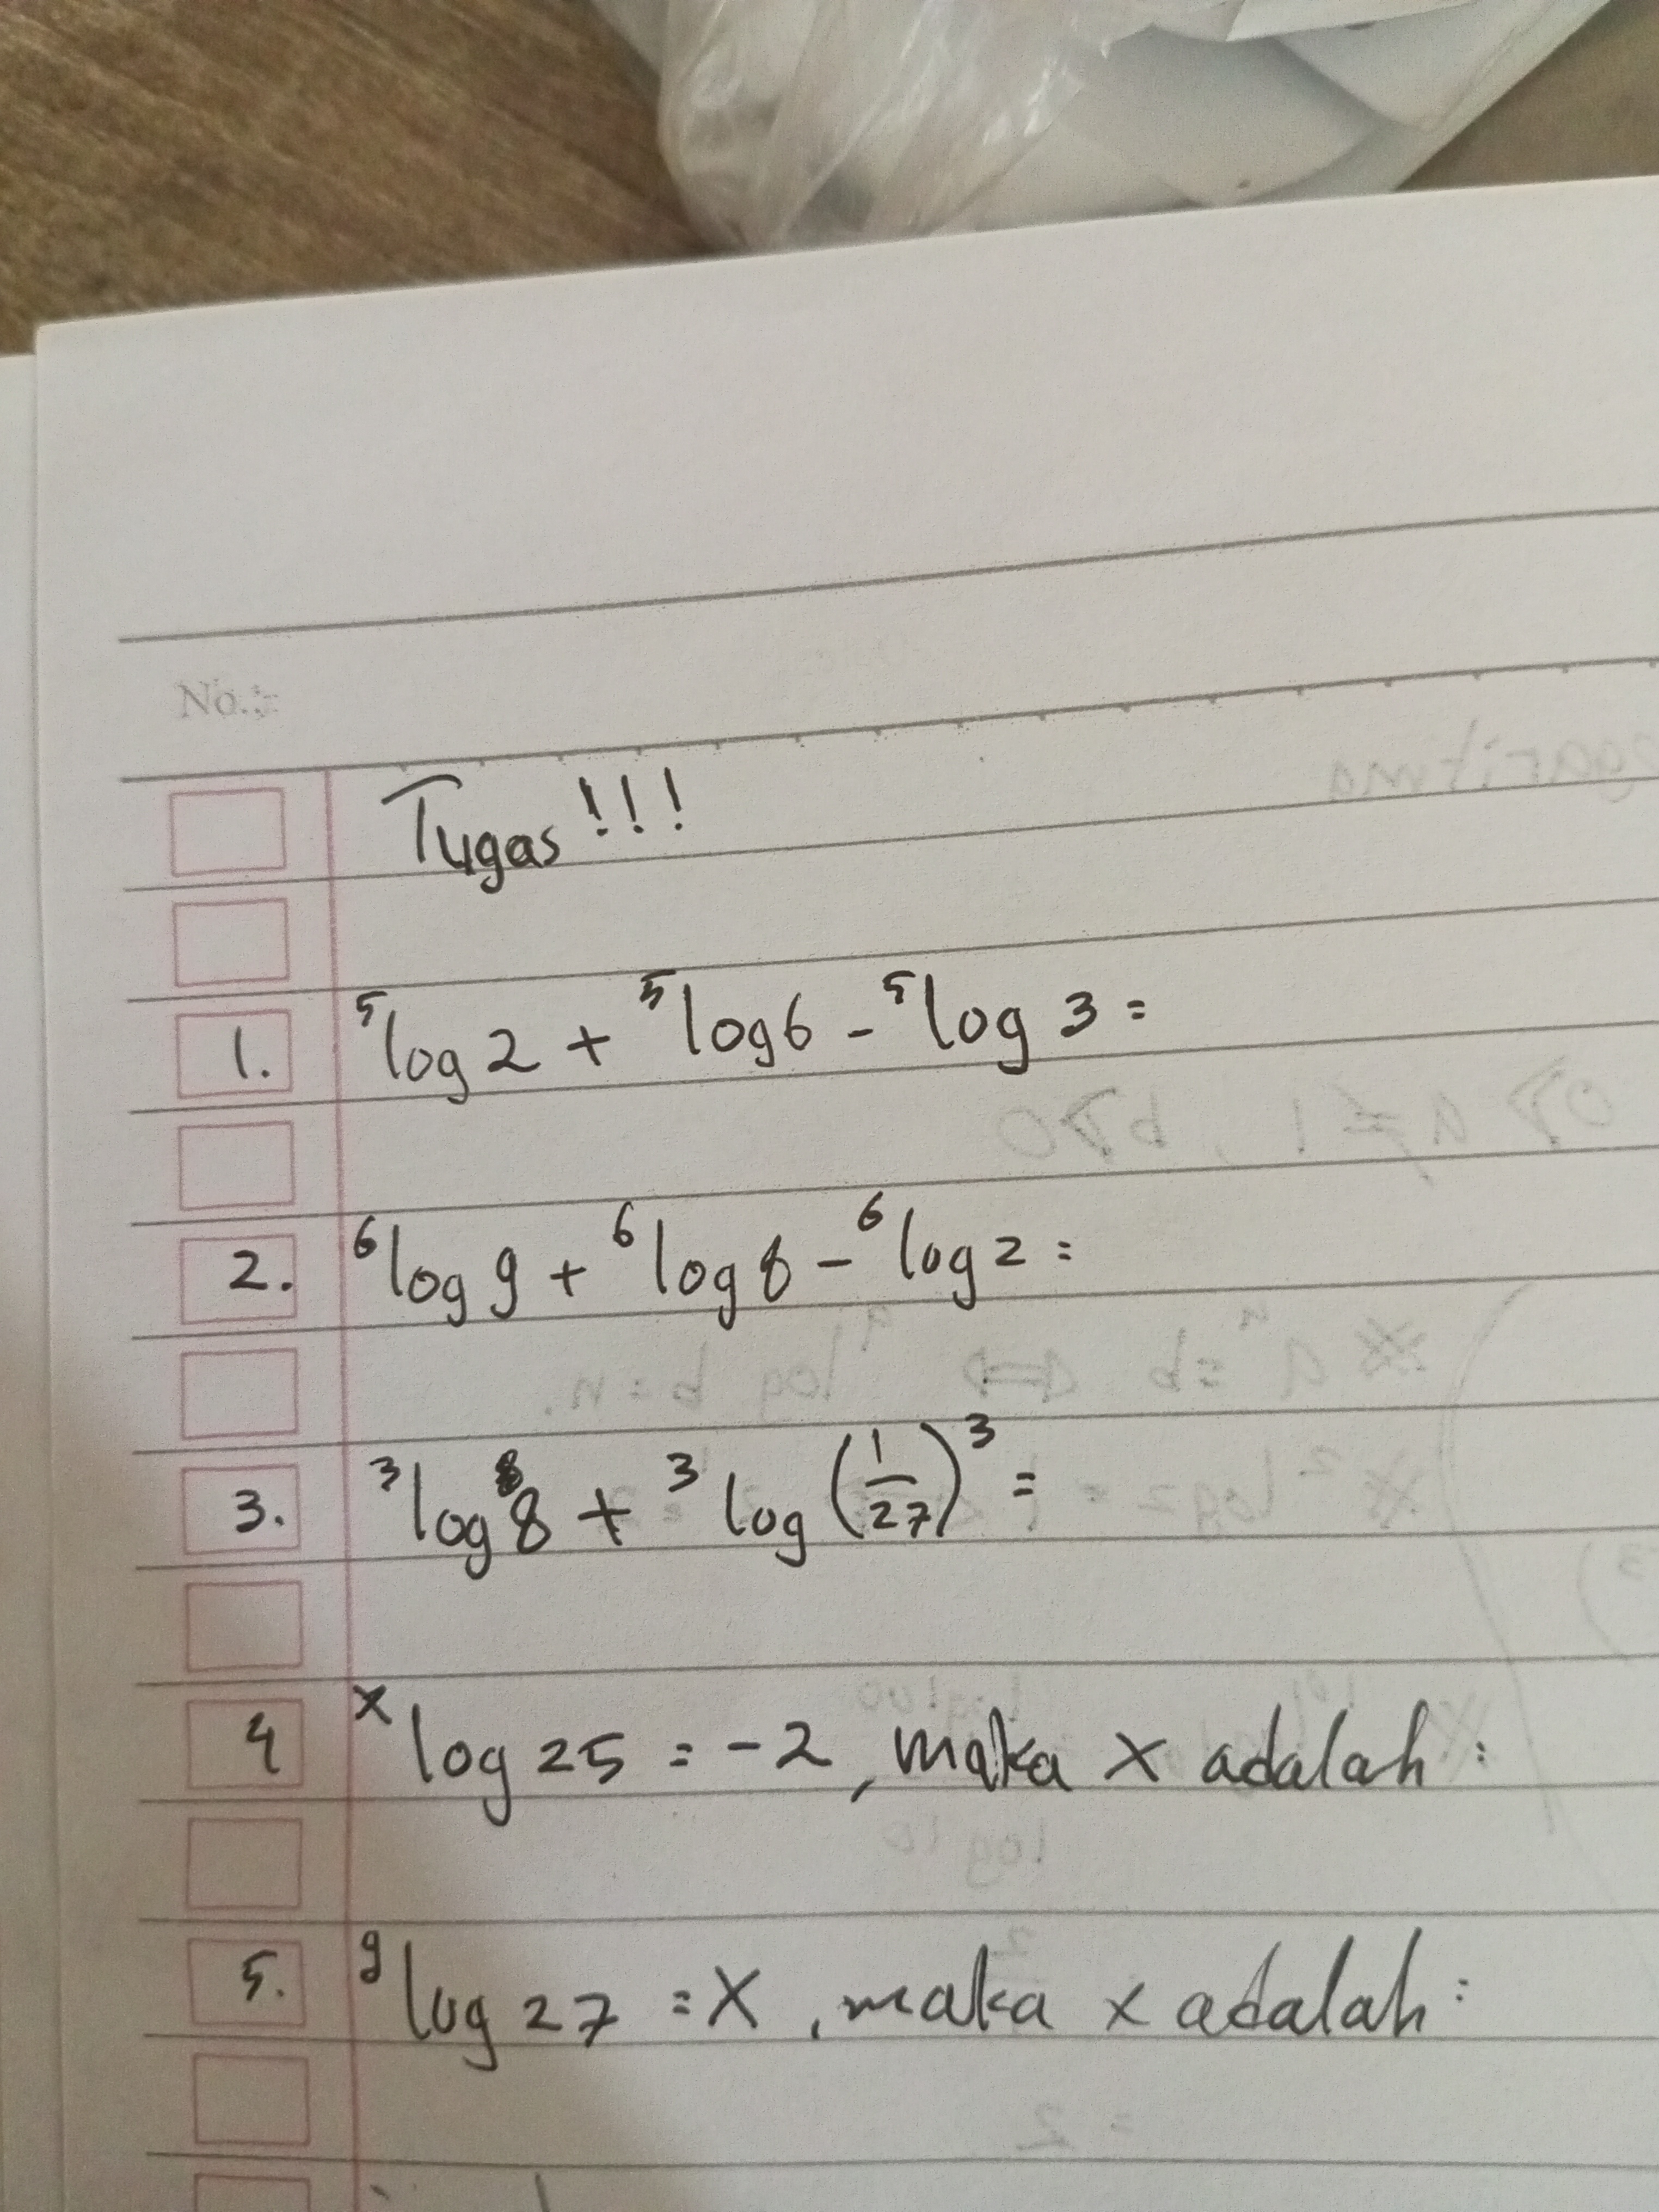 No.:
Tugas !!!
1. ⁵log 2 + ⁵log 6 - ⁵log 3 =
2. ⁶log 9 + ⁶log 8 - ⁶log 2 =
3. ³log 8 + ³log (1/27)³ =
4 ˣlog 25 = -2, maka x adalah :
5. ⁹log 27 = x, maka x adalah :